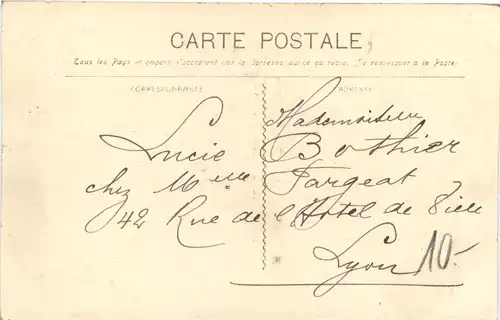 CARTE POSTALE
Tous les Pays étrangers n'acceptent pas la correspondance au recto. Se renseigner à la Poste.
CORRESPONDANCE
ADRESSE
Mademoiselle
Lucie Bothier
chez Melle Fargeat
42 Rue de l'Hotel de Ville
Lyon
10.-